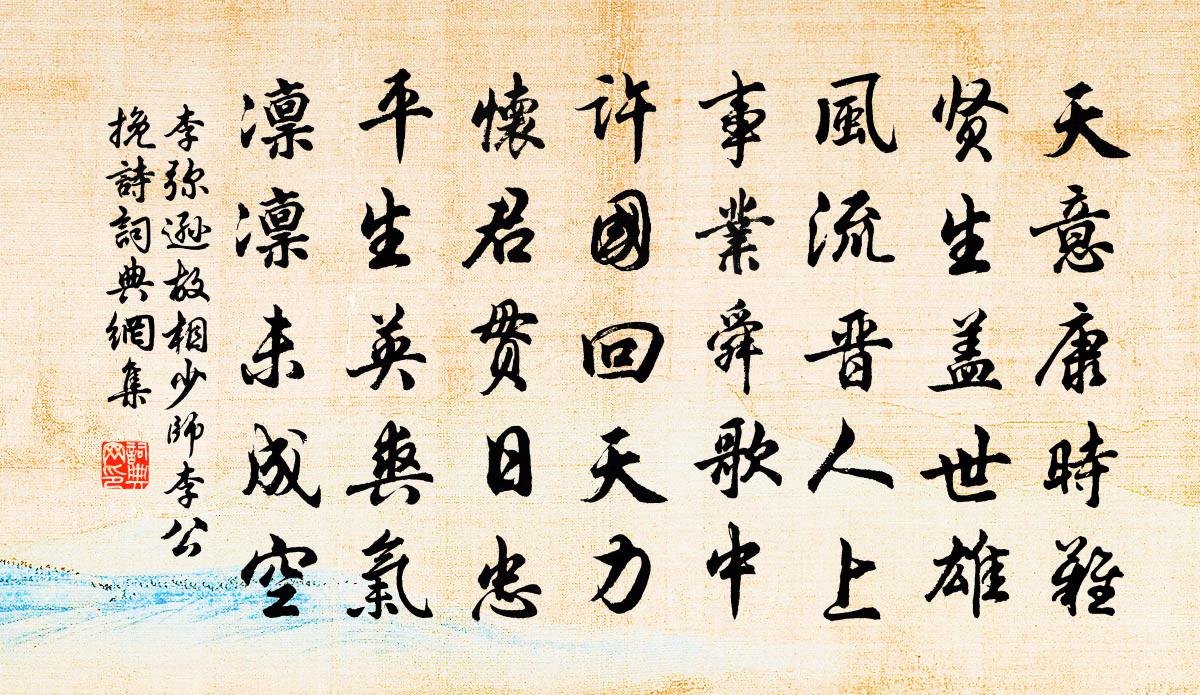 天意康時難
贤生盖世雄
風流晋人上
事業舜歌中
許國回天力
懷君贯日忠
平生英爽氣
凛凛未成空
李弥遜故相少師李公
挽詩詞典網集
詞典
网印